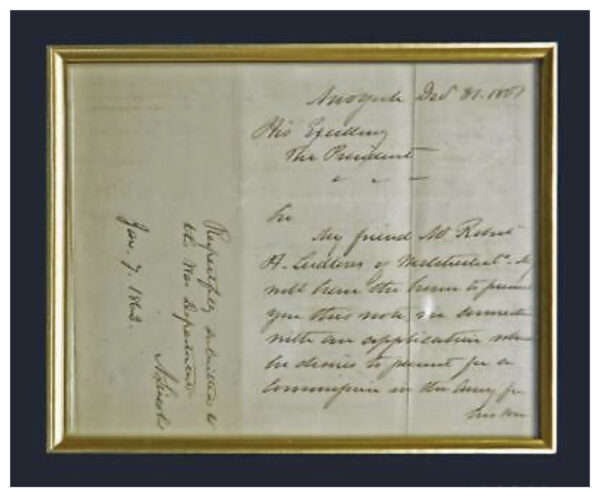 New York Dec 31. 1861
His Excellency
The President
Sir
My friend Mr Robert
H. Ludlow of Westchester Co. N.Y
will have the honor to present
you this note, in connection
with an application which
he desires to present for a
Commission in the Army for
his
Respectfully submitted to
the War Department.
A. Lincoln
Jan. 7. 1862.